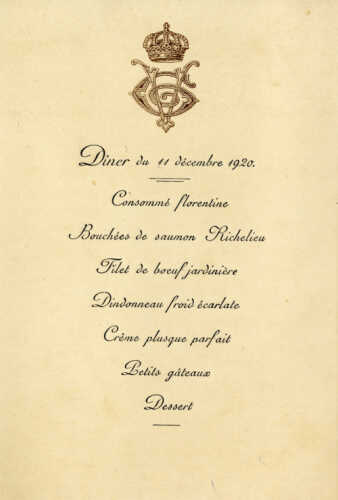 Dîner du 11 décembre 1920.
Consommé florentine
Bouchées de saumon Richelieu
Filet de boeuf jardinière
Dindonneau froid écarlate
Crème plusque parfait
Petits gâteaux
Dessert